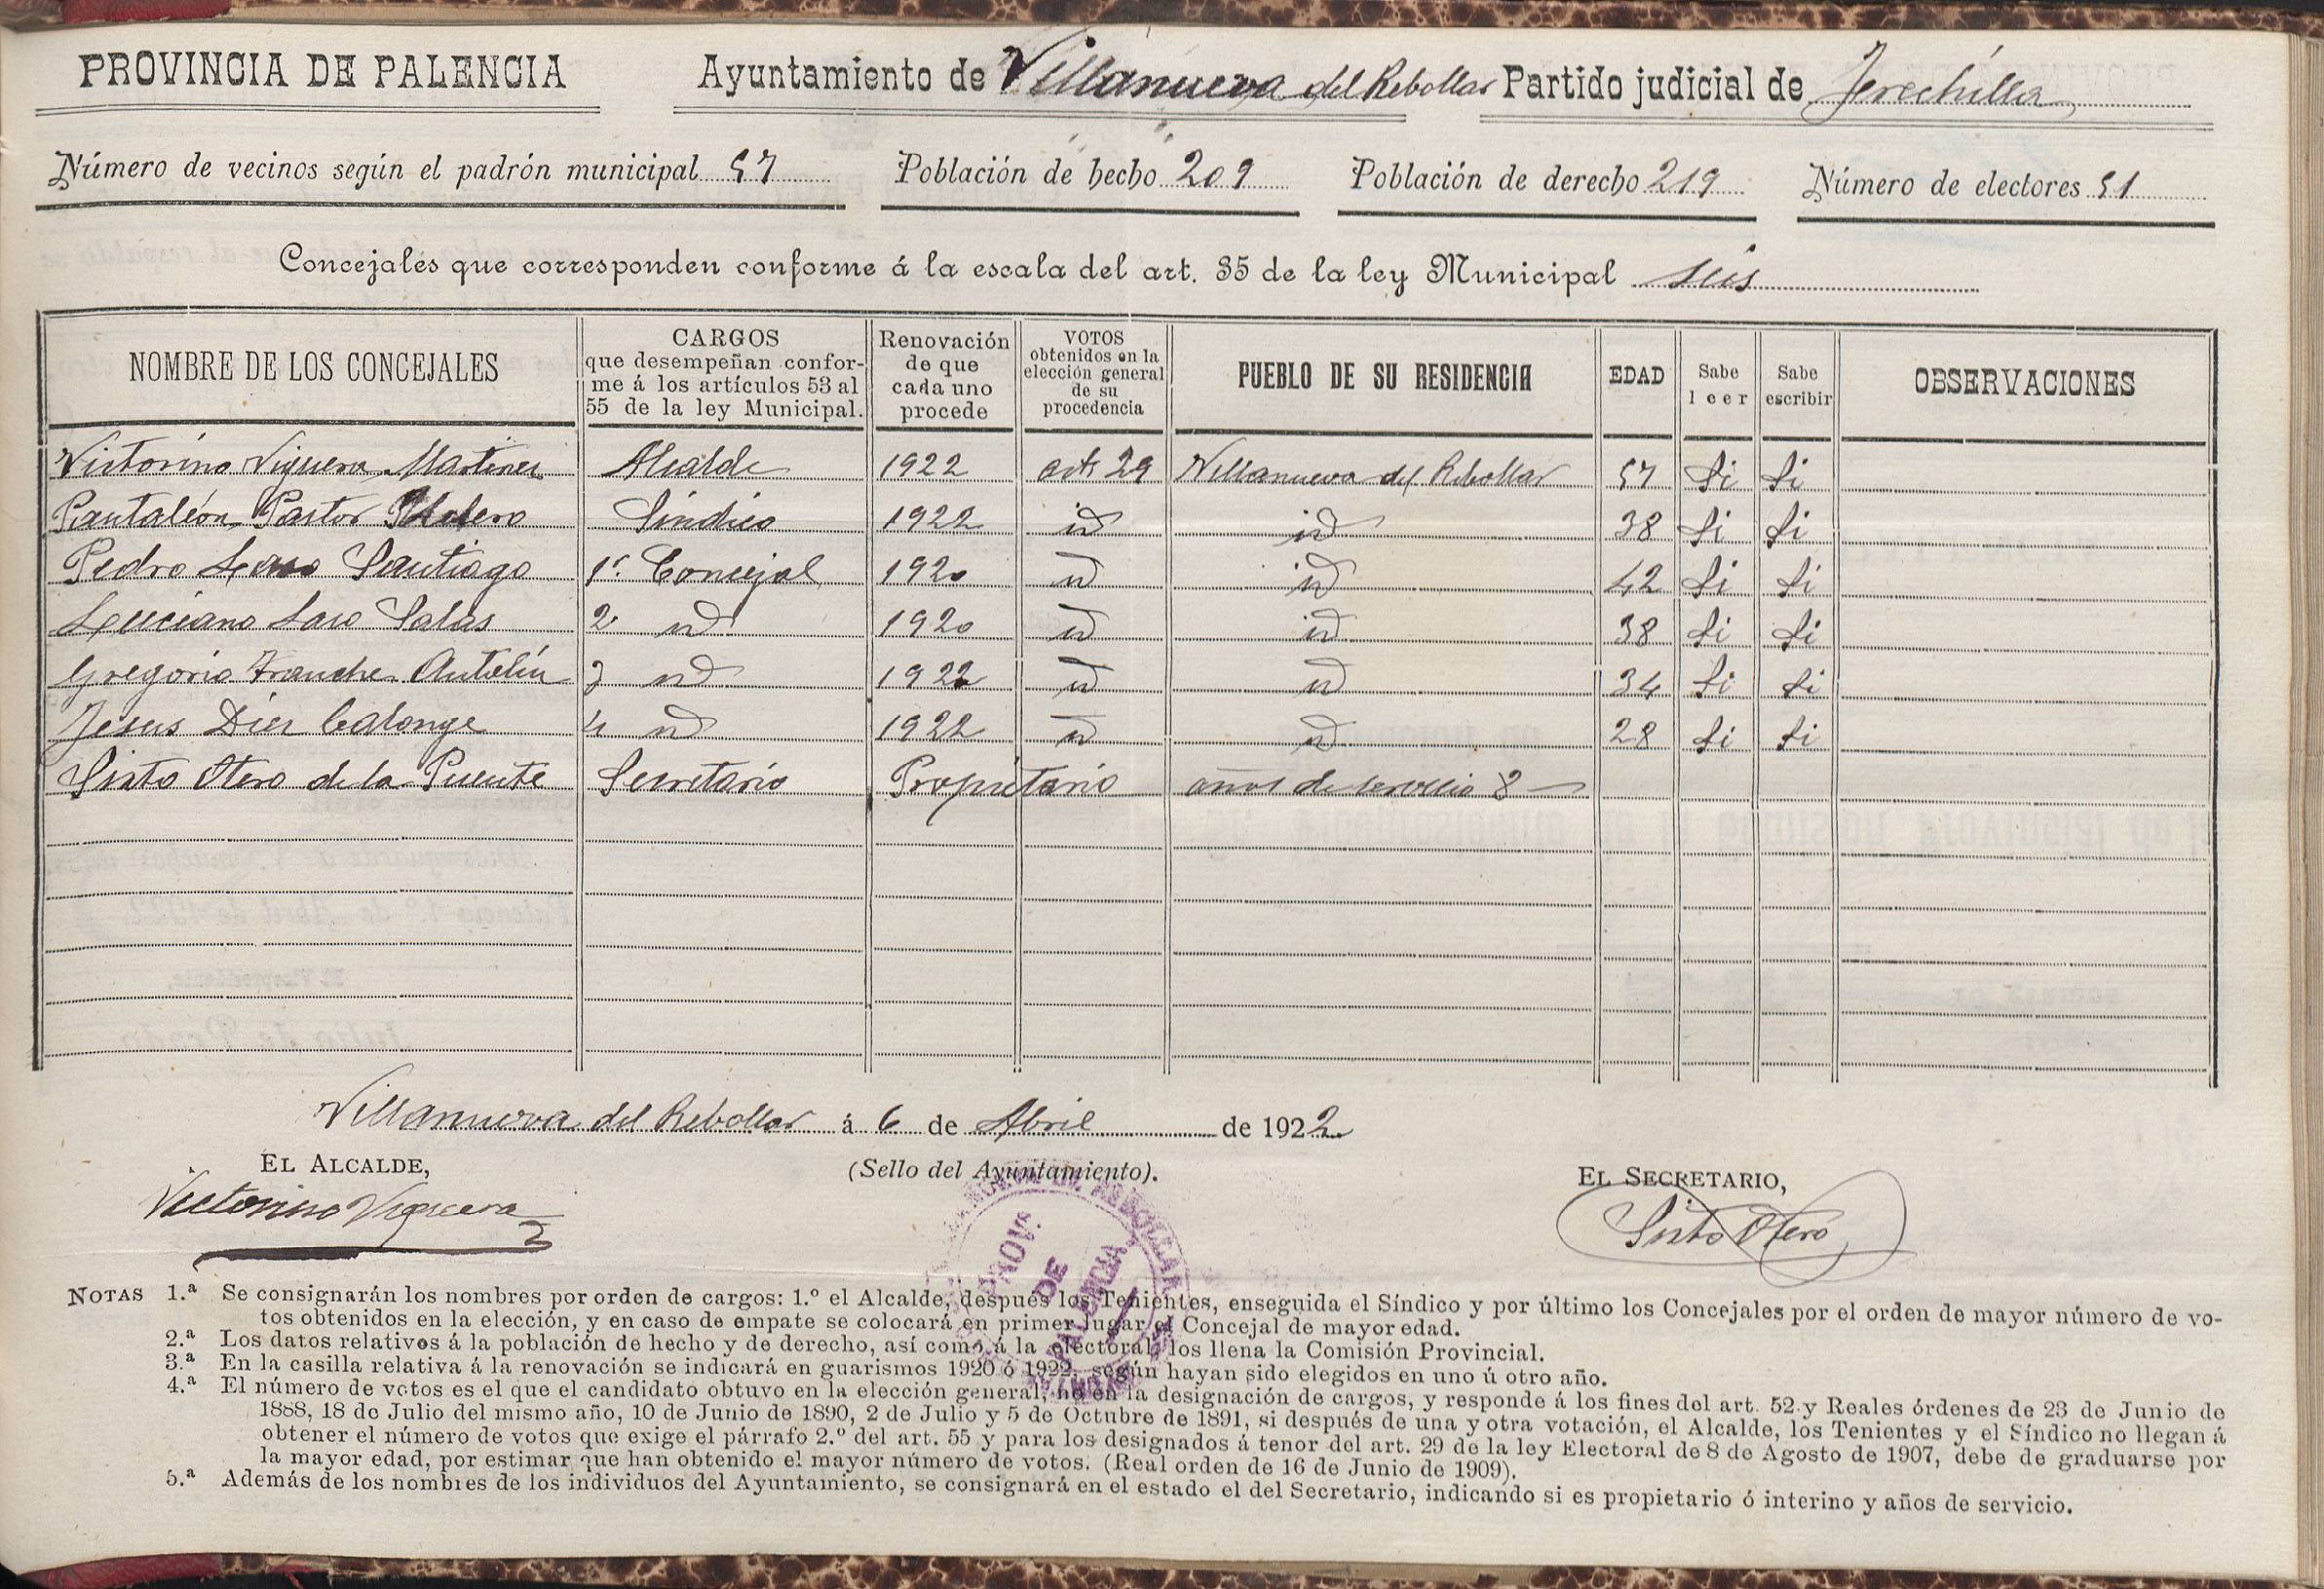 PROVINCIA DE PALENCIA Ayuntamiento de Villanueva del Rebollar Partido judicial de Frechilla
Número de vecinos según el padrón municipal 57 Población de hecho 209 Población de derecho 219 Número de electores 51
Concejales que corresponden conforme á la escala del art. 35 de la ley Municipal seis
NOMBRE DE LOS CONCEJALES CARGOS que desempeñan confor- me á los artículos 53 al 55 de la ley Municipal. Renovación de que cada uno procede VOTOS obtenidos en la elección general de su procedencia PUEBLO DE SU RESIDENCIA EDAD Sabe leer Sabe escribir OBSERVACIONES
Victorino Viguera Martinez Alcalde 1922 art 29 Villanueva del Rebollar 57 Si Si
Pantaleón Pastor Síndico 1922 id id 38 Si Si
Pedro Laso Santiago 1º Concejal 1920 id id 42 Si Si
Luciano Laso Salas 2 id 1920 id id 38 Si Si
Gregorio Tranche Antolín 3 id 1922 id id 34 Si Si
Jesus Diez Calonge 4 id 1922 id id 28 Si Si
Sixto Otero de la Puente Secretario Propietario años de servicio 8
Villanueva del Rebollar á 6 de Abril de 1922
EL ALCALDE, (Sello del Ayuntamiento). EL SECRETARIO,
Victorino Viguera Sixto Otero
PROV. DE PALENCIA
NOTAS 1.ª Se consignarán los nombres por orden de cargos: 1.º el Alcalde, después los Tenientes, enseguida el Síndico y por último los Concejales por el orden de mayor número de vo-
tos obtenidos en la elección, y en caso de empate se colocará en primer lugar el Concejal de mayor edad.
2.ª Los datos relativos á la población de hecho y de derecho, así como á la electoral, los llena la Comisión Provincial.
3.ª En la casilla relativa á la renovación se indicará en guarismos 1920 ó 1922, según hayan sido elegidos en uno ú otro año.
4.ª El número de votos es el que el candidato obtuvo en la elección general, no en la designación de cargos, y responde á los fines del art. 52 y Reales órdenes de 23 de Junio de
1888, 18 de Julio del mismo año, 10 de Junio de 1890, 2 de Julio y 5 de Octubre de 1891, si después de una y otra votación, el Alcalde, los Tenientes y el Síndico no llegan á
obtener el número de votos que exige el párrafo 2.º del art. 55 y para los designados á tenor del art. 29 de la ley Electoral de 8 de Agosto de 1907, debe de graduarse por
la mayor edad, por estimar que han obtenido el mayor número de votos. (Real orden de 16 de Junio de 1909).
5.ª Además de los nombres de los individuos del Ayuntamiento, se consignará en el estado el del Secretario, indicando si es propietario ó interino y años de servicio.